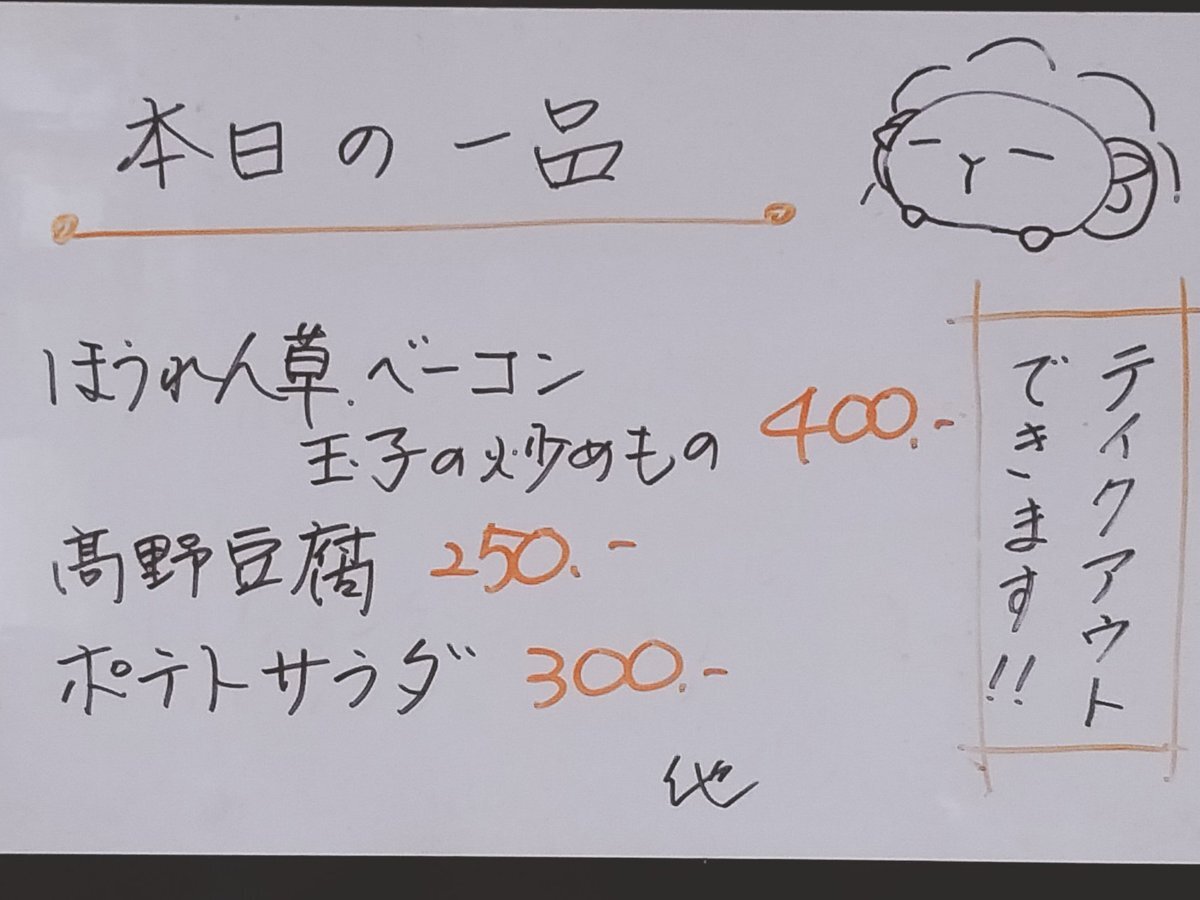 本日の一品
ほうれん草.ベーコン
玉子の炒めもの 400.-
髙野豆腐 250.-
ポテトサラダ 300.-
他
テイクアウト
できます!!